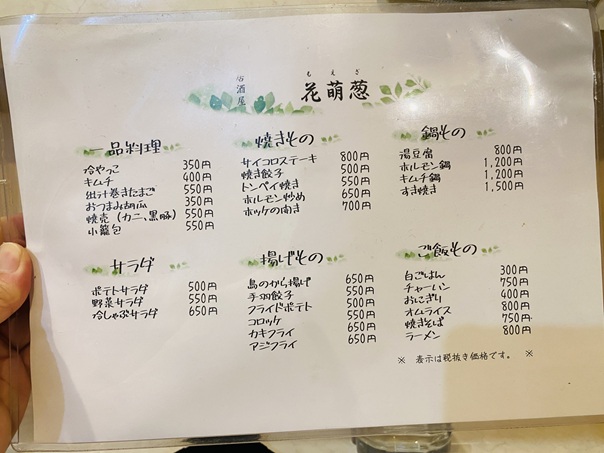 居酒屋
もえぎ
花萌葱
一品料理
冷やっこ 350円
キムチ 400円
出汁巻きたまご 550円
おつまみ胡瓜 350円
焼売(カニ、黒豚) 550円
小籠包 550円
焼きもの
サイコロステーキ 800円
焼き餃子 500円
トンペイ焼き 550円
ホルモン炒め 650円
ホッケの開き 700円
鍋もの
湯豆腐 800円
ホルモン鍋 1,200円
キムチ鍋 1,200円
すき焼き 1,500円
サラダ
ポテトサラダ 500円
野菜サラダ 550円
冷しゃぶサラダ 650円
揚げもの
鳥のから揚げ 650円
手羽餃子 550円
フライドポテト 500円
コロッケ 550円
カキフライ 650円
アジフライ 650円
ご飯もの
白ごはん 300円
チャーハン 750円
おにぎり 400円
オムライス 800円
焼きそば 750円
ラーメン 800円
※ 表示は税抜き価格です。 ※